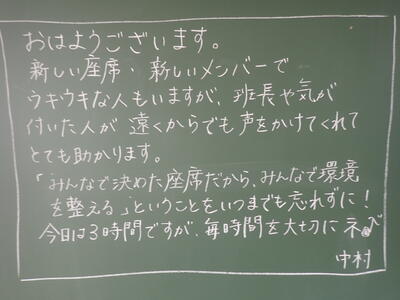 おはようございます。
新しい座席・新しいメンバーで
ウキウキな人もいますが、班長や気が
付いた人が遠くからでも声をかけてくれて
とても助かります。
「みんなで決めた座席だから、みんなで環境
を整える」ということをいつまでも忘れずに！
今日は3時間ですが、毎時間を大切に
中村